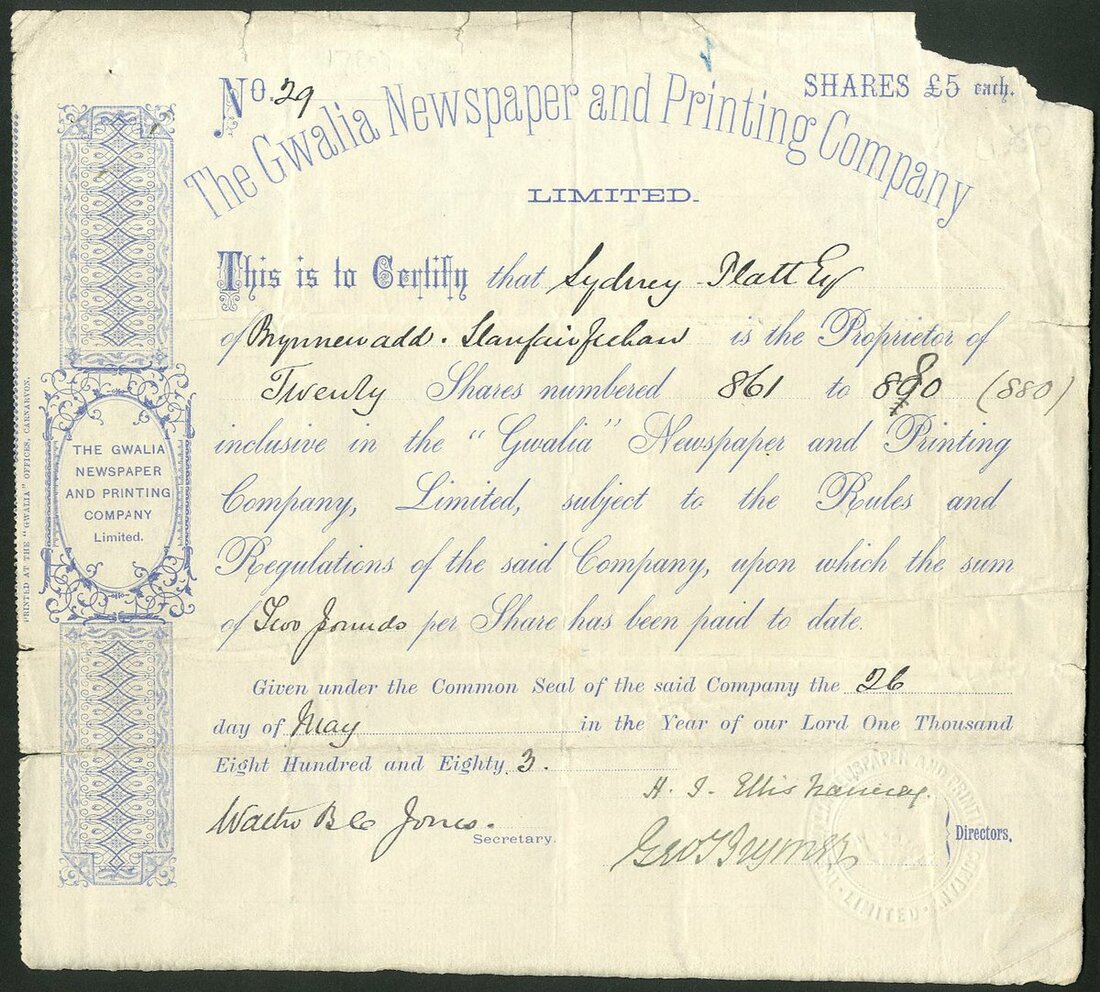 No. 29
SHARES £5 each.
The Gwalia Newspaper and Printing Company
LIMITED.
This is to Certify that Sydney Platt Esq
of Brynnewadd. Llanfairfechan is the Proprietor of
Twenty Shares numbered 861 to 880 (880)
inclusive in the "Gwalia" Newspaper and Printing
Company, Limited, subject to the Rules and
Regulations of the said Company, upon which the sum
of Two Pounds per Share has been paid to date.
Given under the Common Seal of the said Company the 26
day of May in the Year of our Lord One Thousand
Eight Hundred and Eighty 3.
H. J. Ellis Nanney.
Walter B C Jones.
Secretary.
Directors.
THE GWALIA
NEWSPAPER
AND PRINTING
COMPANY
Limited.
PRINTED AT THE "GWALIA" OFFICES, CARNARVON.
LIMITED